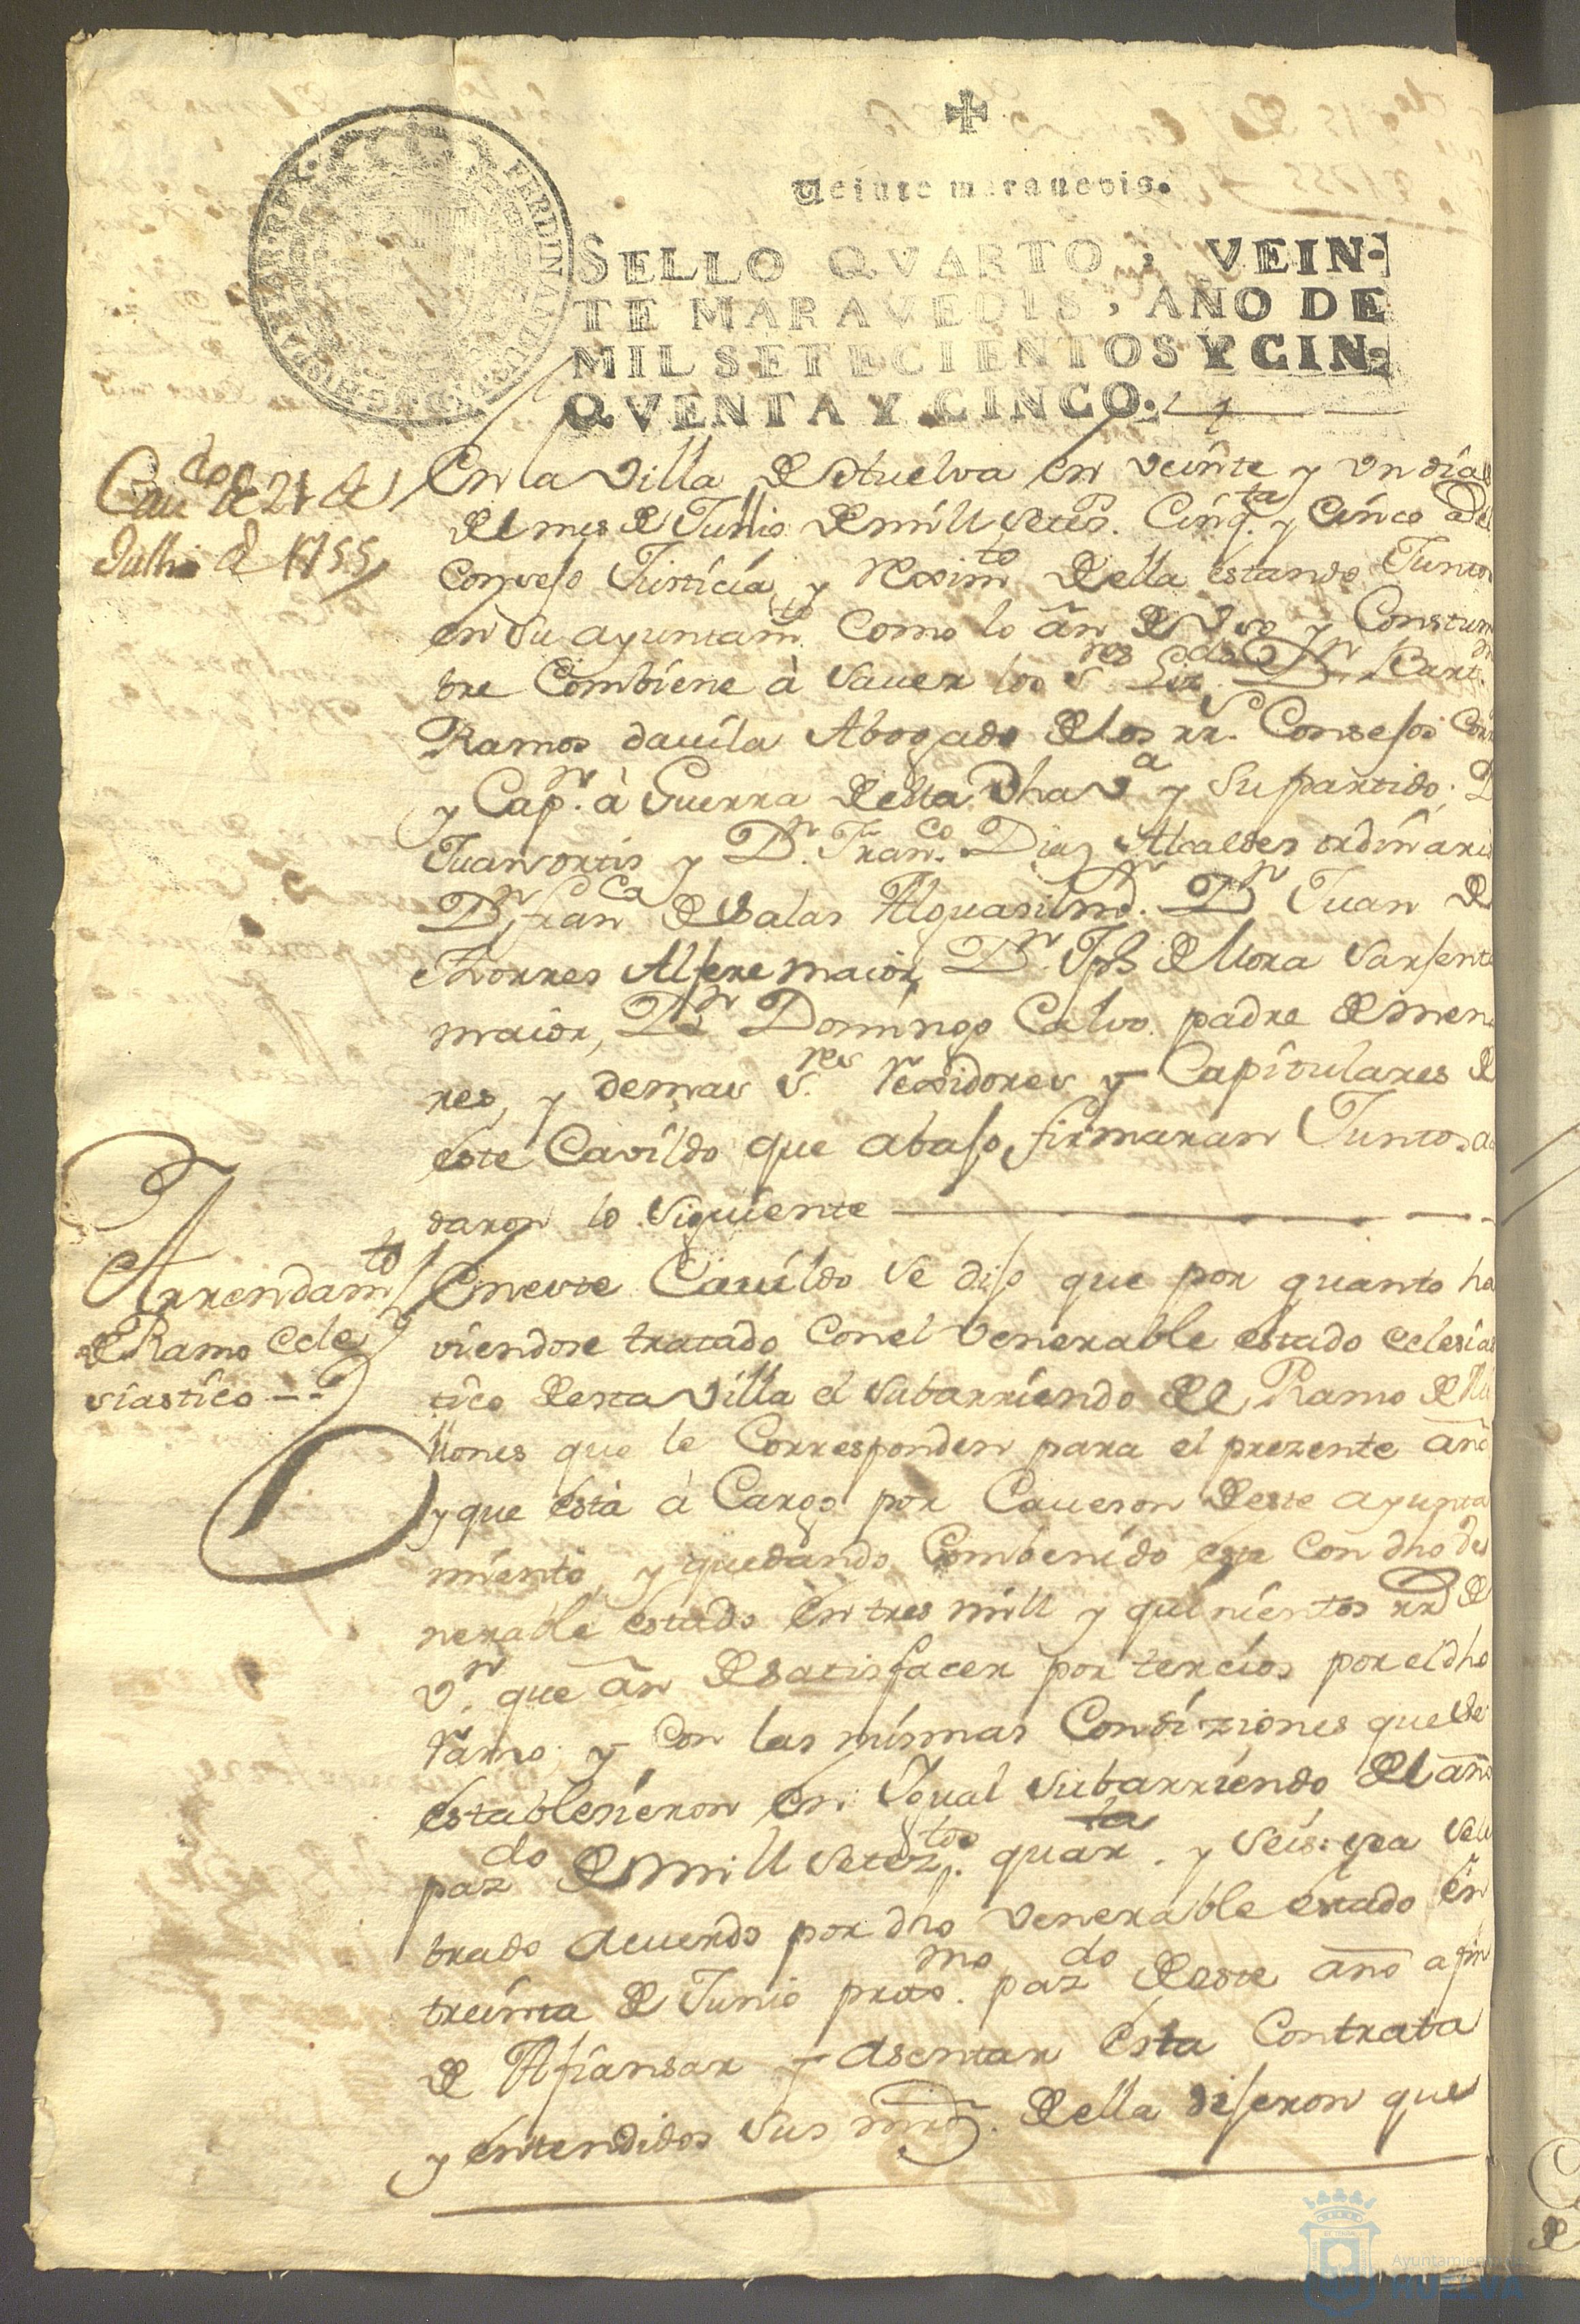 ✠
Veinte maravedis.
SELLO QVARTO, VEIN-
TE MARAVEDIS, AÑO DE
MIL SETECIENTOS Y CIN-
QVENTA Y CINCO.
FERDINANDUS HISPANIARUM REX
Caudo de 21 de
Julio d 1755
En la Villa de Huelva en veinte y un dias
del mes de Junio de mill setezs. Cinqta y Cinco a
Consejo Justicia, y Reximto della estando Juntos
en su ayuntamto como lo an de Vso y Constum
bre Combiene à sauer los Sres Lizdo Dn
Ramos dauila Abogado de los rrs. Consejos Corr
y Capn à Guerra desta dha Va y su partido; D
Juan ortis y Dn Franco Diaz Alcaldes ordinari
Dn franca de Salas Alguasil mor Dn Juan de
thorres Alfere maior, Dn Jph de Mora Sarjento
maior, Dn Domingo Calvo padre de men
res, y demas Sres Rexidores y Capitulares de
este Cavildo que abajo firmaran Juntos a
daron lo siguiente
Arrendamto
de Ramo Ecle
siastico
En este Cauildo se dijo que por quanto ha
viendose tratado con el Venerable estado eclesias
tico desta Villa el subarriendo del Ramo de Mi
llones que le Corresponden para el prezente año
y que està à Cargo por Caueson deste ayunta
miento, y quedando Combenido este con dho Ve
nerable estado en tres mill y quinientos rrs de
Vn. que an de satisfacer por tercios por el dho
ramo y con las mismas Condiziones que se
establesieron en Igual subarriendo del año
pazdo de mill setezto. quarta. y seis: sea sele
brado acuerdo por dho Venerable estado en
treinta de Junio proxmo pazdo deste año a fin
de Afiansar y asentar esta Contrata
y entendidos sus mrds. della dijeron que
Ayuntamiento de
HUELVA